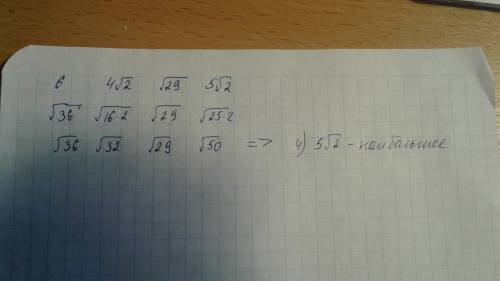 6 4√2 √29 5√2
√36 √16·2 √29 √25·2
√36 √32 √29 √50 => 4) 5√2 - наибольшее